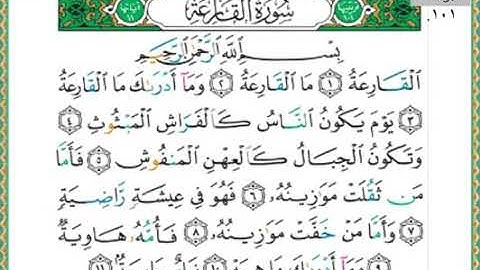 ١٠١.
سُورَةُ القَارِعَةِ
بِسْمِ اللَّهِ الرَّحْمَٰنِ الرَّحِيمِ
الْقَارِعَةُ ١ مَا الْقَارِعَةُ ٢ وَمَا أَدْرَىٰكَ مَا الْقَارِعَةُ
٣ يَوْمَ يَكُونُ النَّاسُ كَالْفَرَاشِ الْمَبْثُوثِ ٤
وَتَكُونُ الْجِبَالُ كَالْعِهْنِ الْمَنفُوشِ ٥ فَأَمَّا
مَن ثَقُلَتْ مَوَٰزِينُهُۥ ٦ فَهُوَ فِي عِيشَةٍ رَّاضِيَةٍ
٧ وَأَمَّا مَنْ خَفَّتْ مَوَٰزِينُهُۥ ٨ فَأُمُّهُۥ هَاوِيَةٌ
٩ وَمَا أَدْرَىٰكَ مَا هِيَهْ ١٠ نَارٌ حَامِيَةٌ ١١